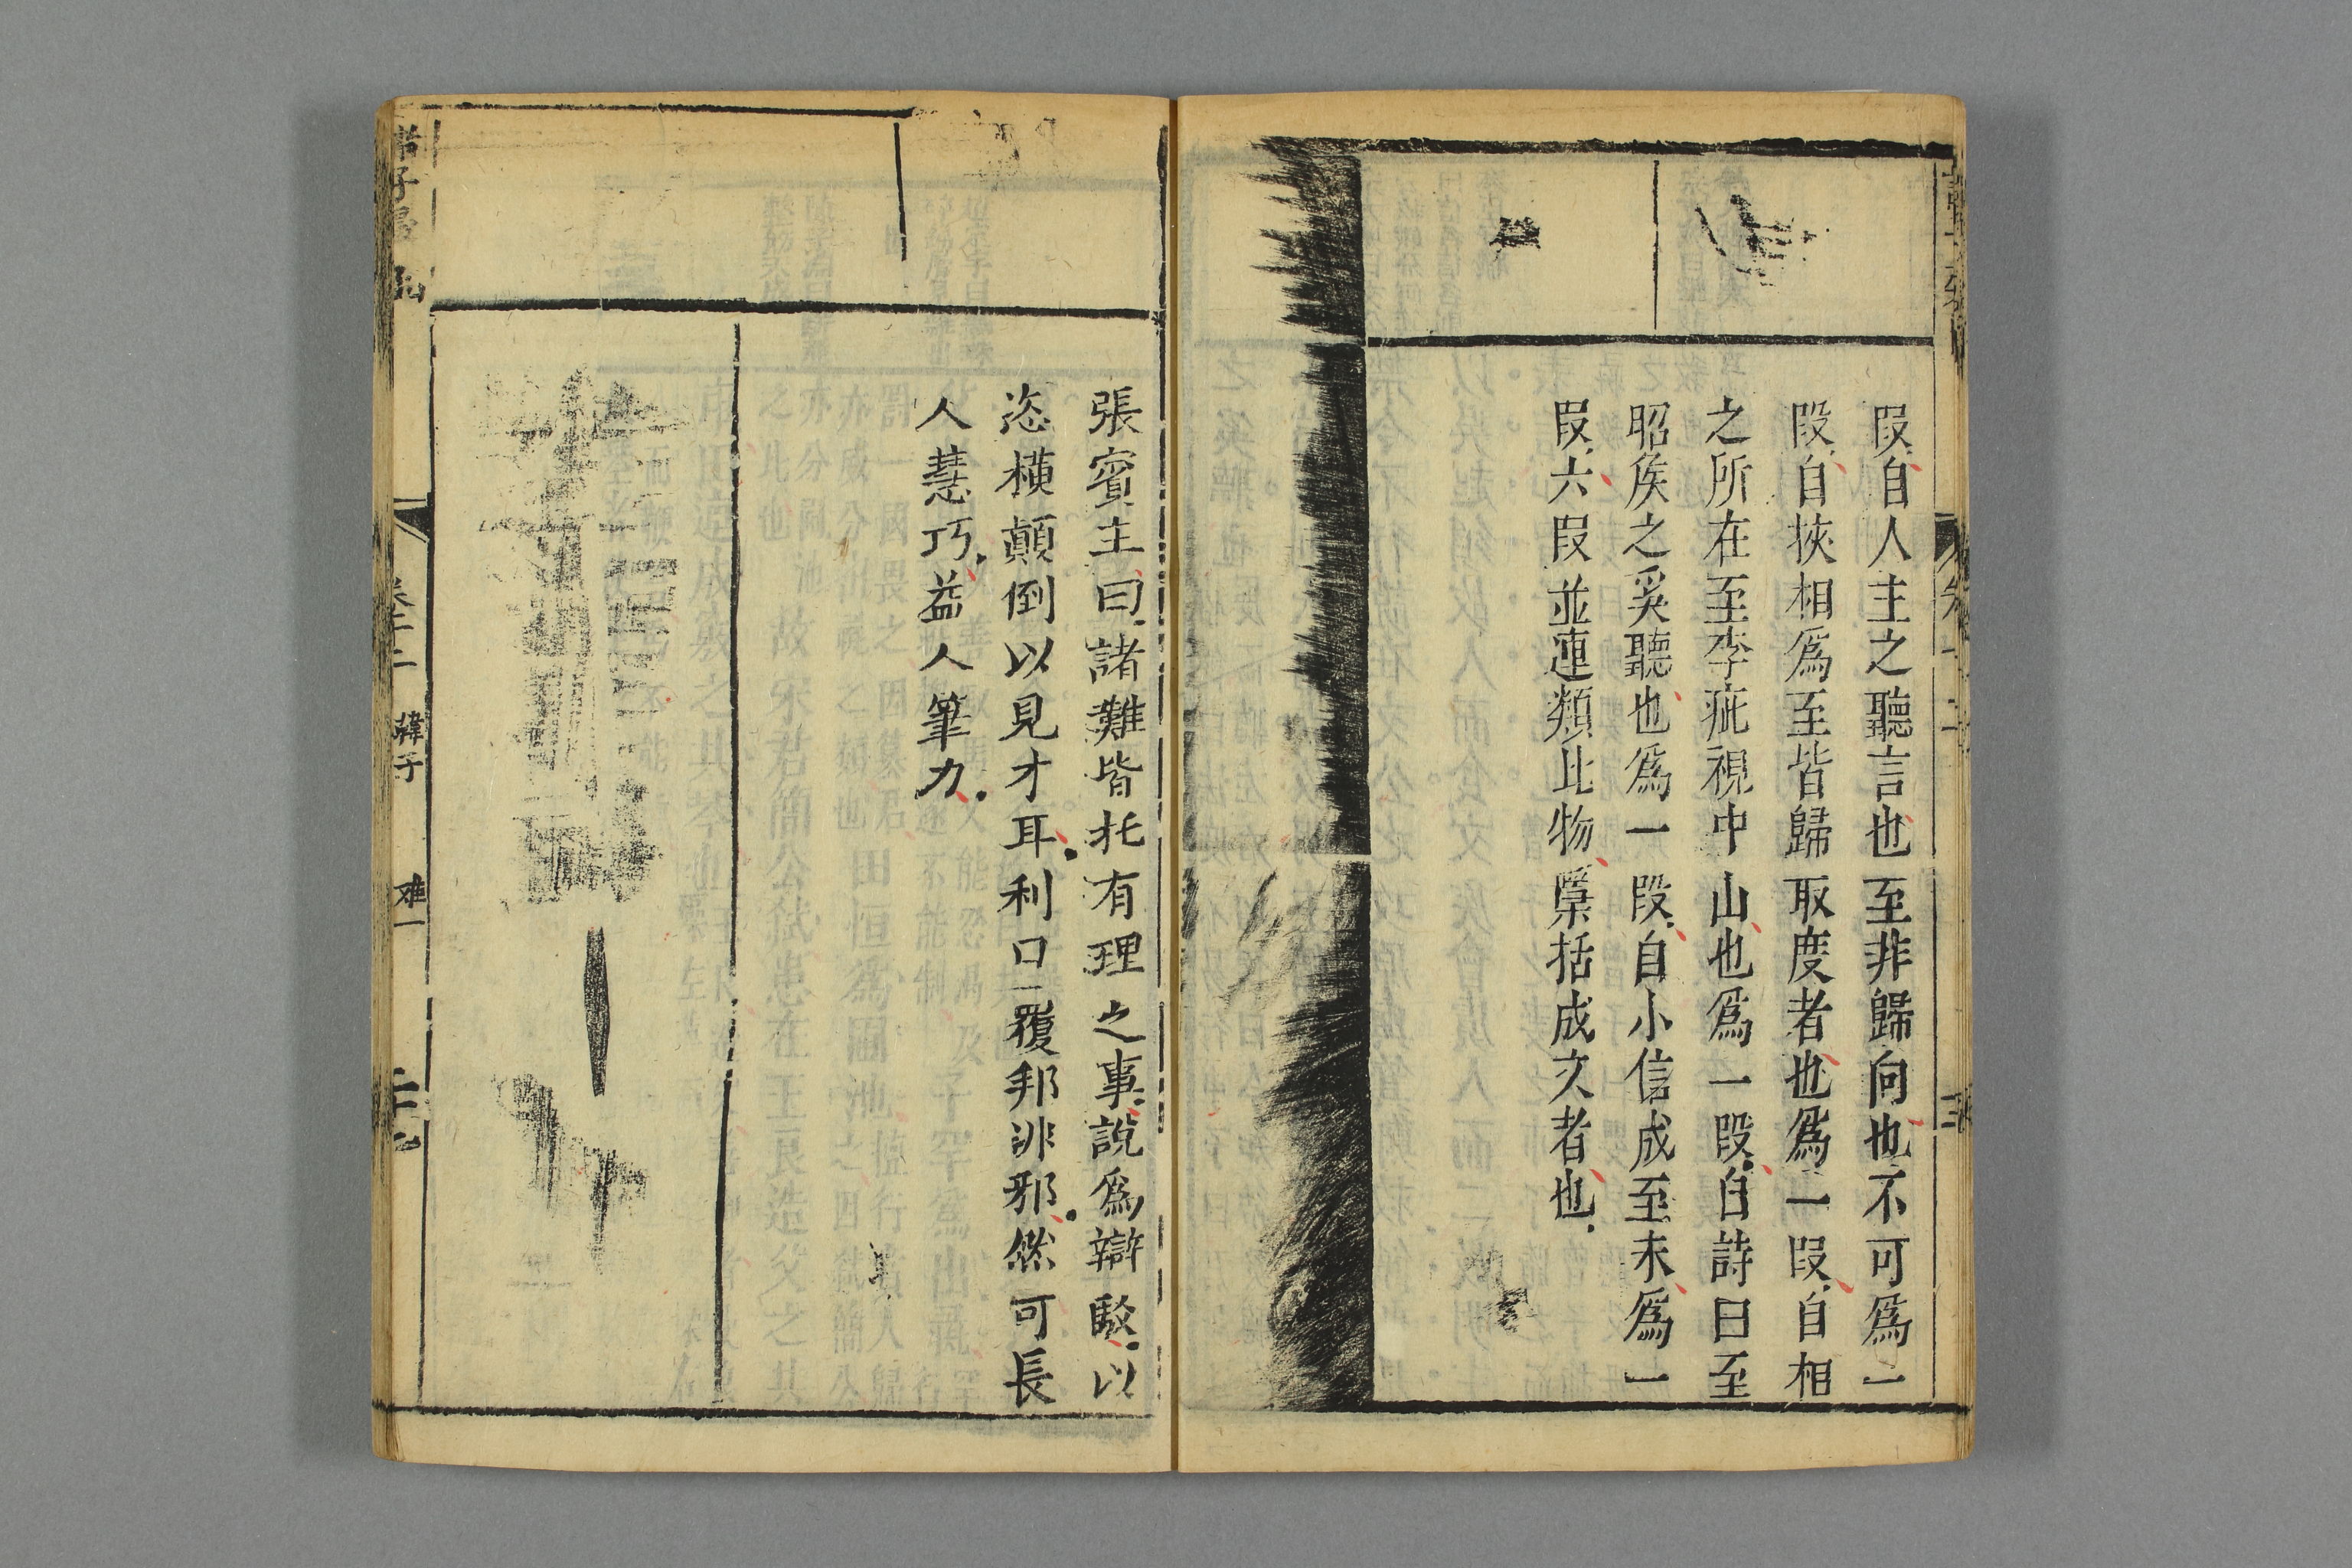 段自人主之聽言也至非歸向也不可爲一
段自挾相爲至皆歸取度者也爲一段自相
之所在至李疵視中山也爲一段自詩曰至
昭矦之奚聽也爲一段自小信成至末爲一
段六段並連類比物檃括成文者也
張賓主曰諸難皆托有理之事說爲辯駁以
恣橫顛倒以見才耳利口覆邦非邪然可長
人慧巧益人筆力
卷十二 韓子 难一